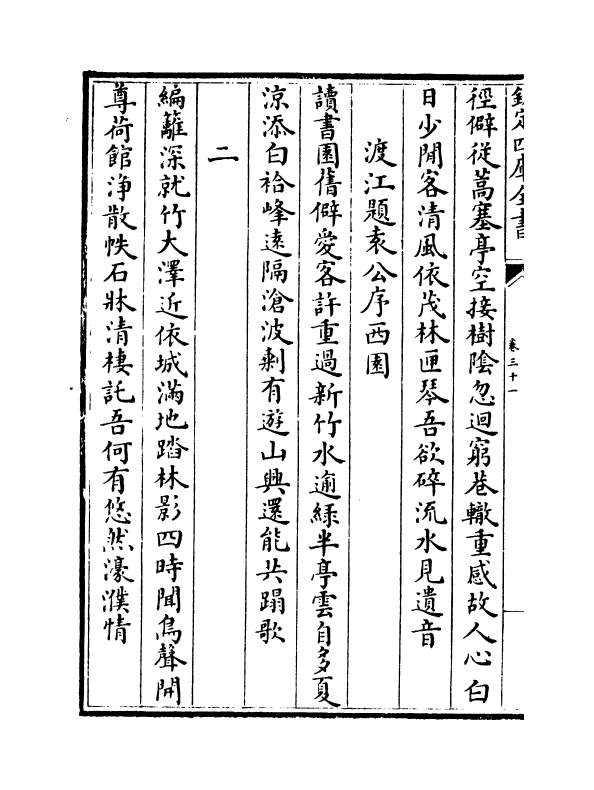 欽定四庫全書
卷三十一
徑僻從蒿塞亭空接樹陰忽迴窮巷轍重感故人心白
日少閒客清風依茂林匣琴吾欲碎流水見遺音
渡江題袁公序西園
讀書園舊僻愛客許重過新竹水逾緑半亭雲自多夏
涼添白袷峰遠隔滄波剩有遊山興還能共蹋歌
二
編籬深就竹大澤近依城滿地踏林影四時聞鳥聲開
尊荷館淨散帙石牀清棲託吾何有悠然濠濮情